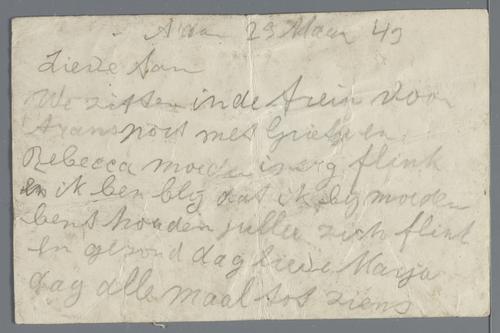 A'dam 23 Maart 43
Lieve Aan
We zitten in de trein voor
transport met Grietje en
Rebecca moeder is erg flink
en ik ben blij dat ik bij moeder
bent houden jullie zich flink
en gezond dag lieve Marja
dag alle maal tot ziens